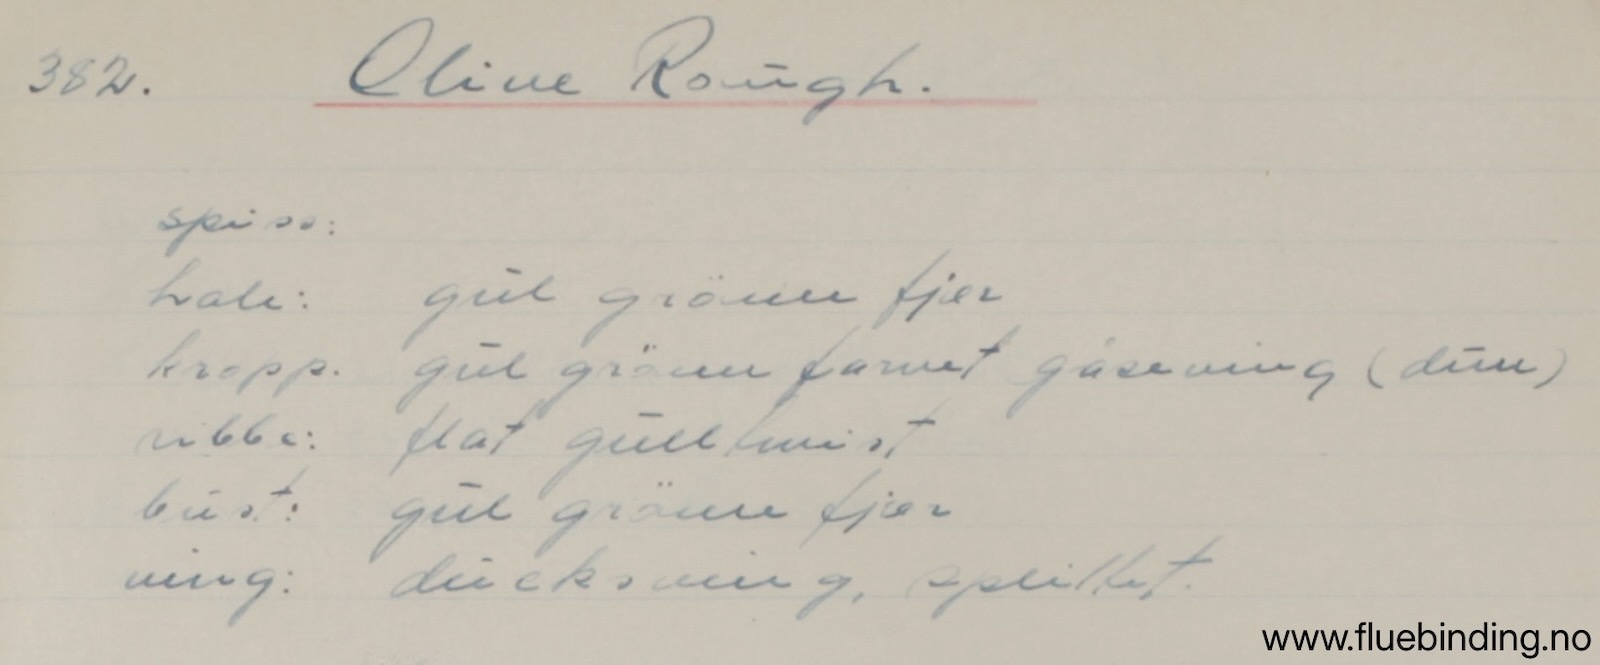 382. Olive Rough.
spiss:
hale: gul grönn fjer
kropp. gul grönn farvet gåseving (dun)
ribbe: flat gulltwist
bust: gul grönn fjer
ving: ducksving, splittet.
www.fluebinding.no